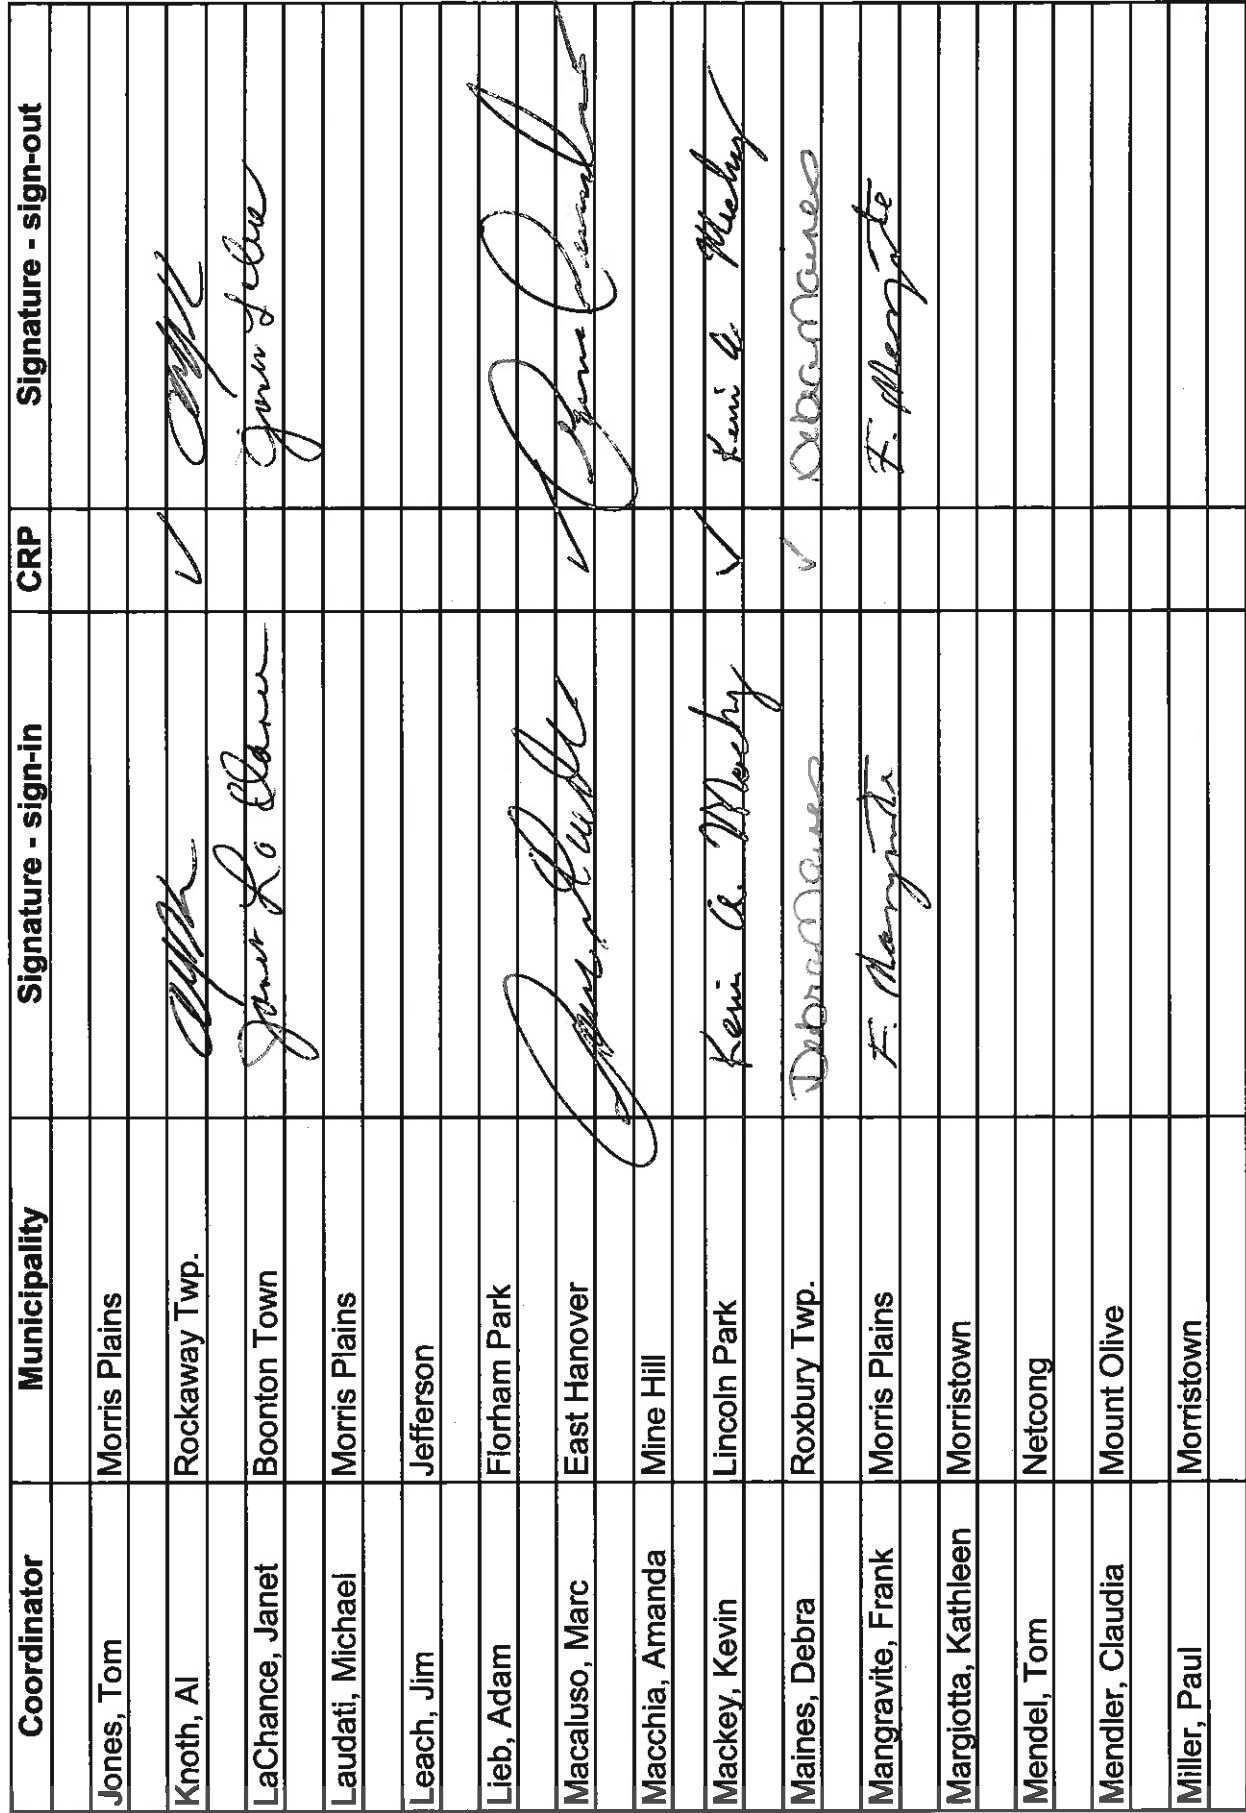 Coordinator Municipality Signature - sign-in CRP Signature - sign-out
Jones, Tom Morris Plains
Knoth, Al Rockaway Twp. ✓
LaChance, Janet Boonton Town Janet
Laudati, Michael Morris Plains
Leach, Jim Jefferson
Lieb, Adam Florham Park
Macaluso, Marc East Hanover ✓
Macchia, Amanda Mine Hill
Mackey, Kevin Lincoln Park Kevin A. Mackey ✓ Kevin A Mackey
Maines, Debra Roxbury Twp. Debra Maines ✓ Debra Maines
Mangravite, Frank Morris Plains F. F.
Margiotta, Kathleen Morristown
Mendel, Tom Netcong
Mendler, Claudia Mount Olive
Miller, Paul Morristown